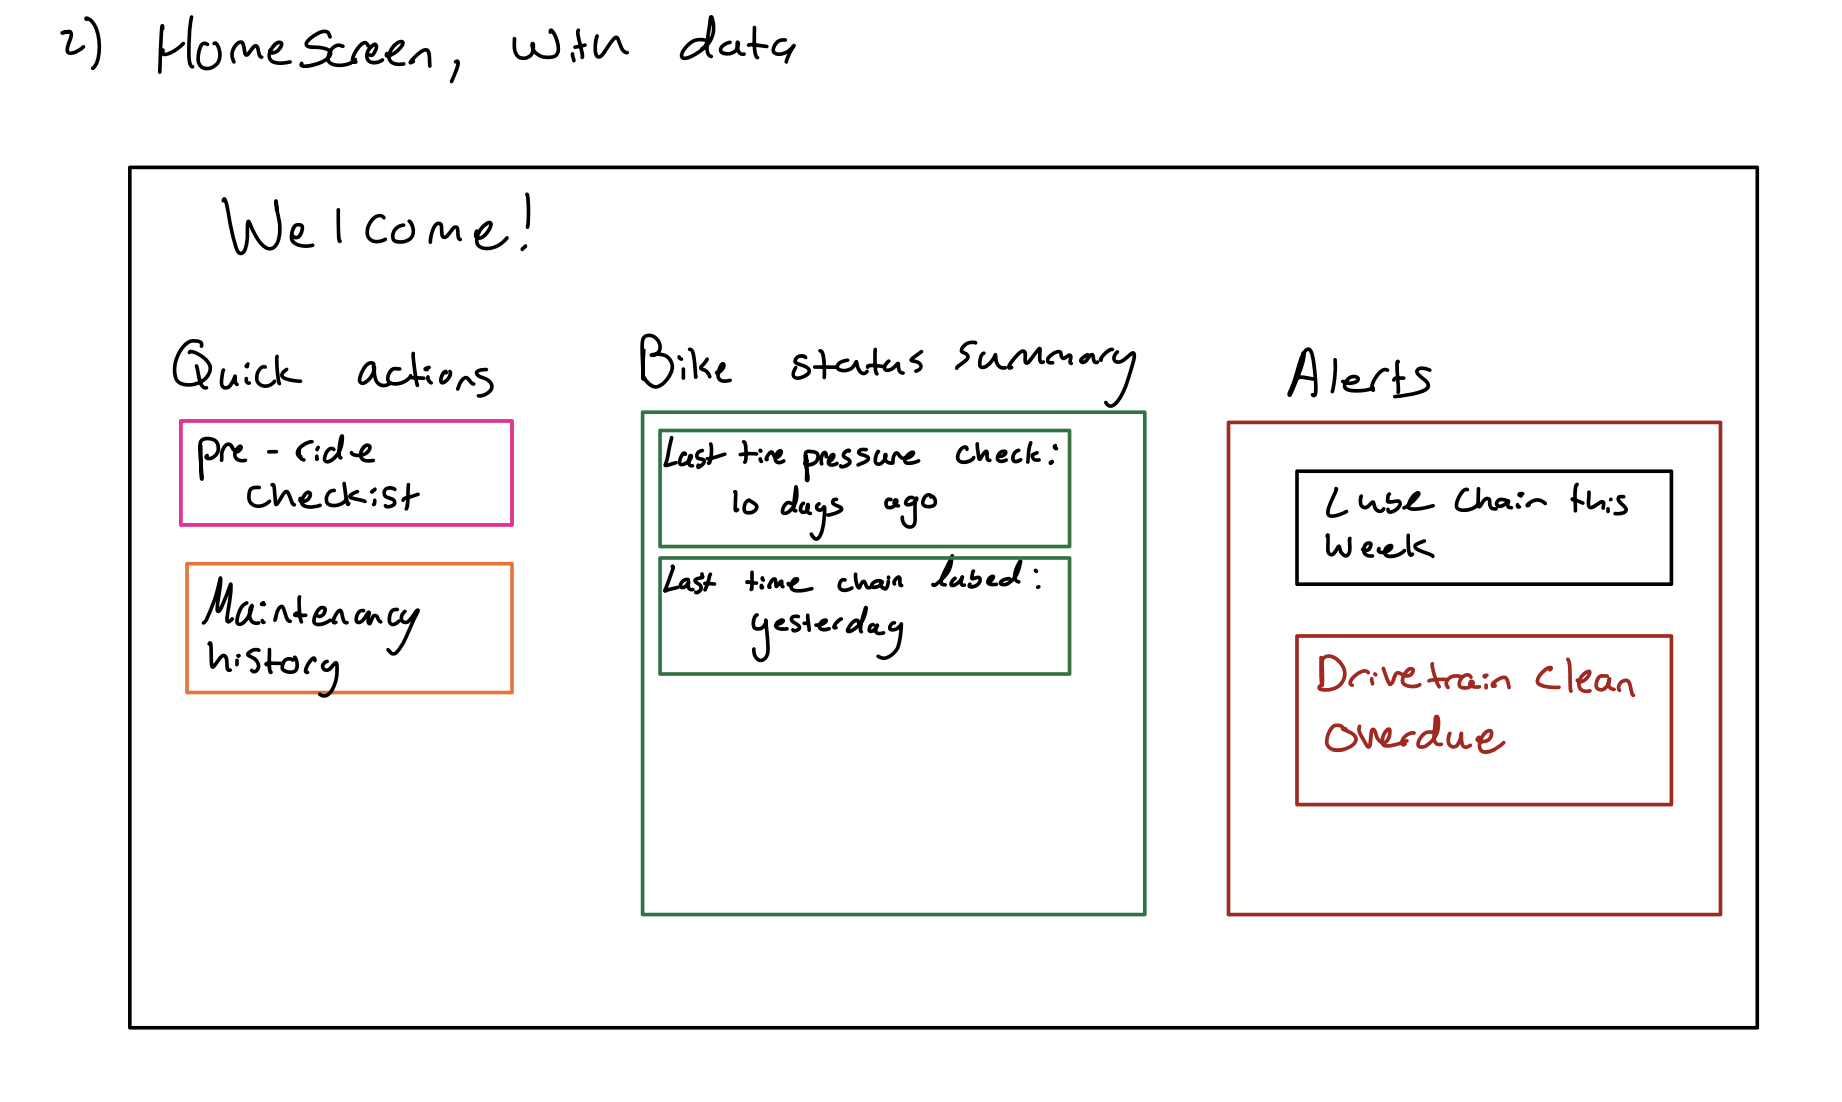 2) HomeScreen, with data
Welcome!
Quick actions
pre-ride
checkist
Maintenancy
history
Bike status summary
Last tire pressure check:
10 days ago
Last time chain lubed:
yesterday
Alerts
Lube chain this
week
Drivetrain clean
overdue